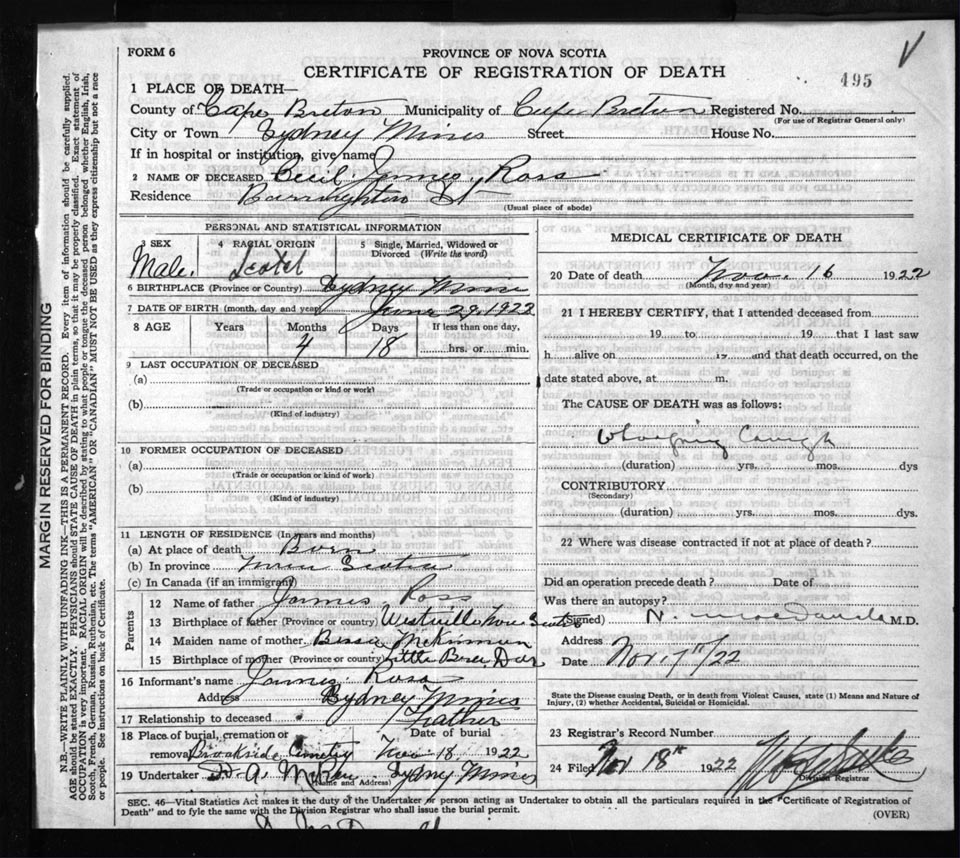 FORM 6
PROVINCE OF NOVA SCOTIA
CERTIFICATE OF REGISTRATION OF DEATH
495
1 PLACE OF DEATH—
County of Cape Breton Municipality of Cape Breton Registered No.
(For use of Registrar General only)
City or Town Sydney Mines Street House No.
If in hospital or institution, give name
2 NAME OF DECEASED Cecil James Ross
Residence Barrington St
(Usual place of abode)
PERSONAL AND STATISTICAL INFORMATION
3 SEX 4 RACIAL ORIGIN 5 Single, Married, Widowed or Divorced (Write the word)
Male. Scotch
6 BIRTHPLACE (Province or Country) Sydney Mines
7 DATE OF BIRTH (month, day and year) June 29, 1922
8 AGE Years Months Days If less than one day,
4 18 hrs. or min.
9 LAST OCCUPATION OF DECEASED
(a)
(Trade or occupation or kind or work)
(b)
(Kind of industry)
10 FORMER OCCUPATION OF DECEASED
(a)
(Trade or occupation or kind of work)
(b)
(Kind of industry)
11 LENGTH OF RESIDENCE (In years and months)
(a) At place of death Born
(b) In province Nova Scotia
(c) In Canada (if an immigrant)
Parents
12 Name of father James Ross
13 Birthplace of father (Province or country) Westville Nova Scotia
14 Maiden name of mother McKinnon
15 Birthplace of mother (Province or country) Little Bras Dor
16 Informant's name James Ross
Address Sydney Mines
17 Relationship to deceased Father
18 Place of burial, cremation or removal Brookside Cemetry Date of burial Nov 18 1922
19 Undertaker Sydney Mines
(Name and Address)
MEDICAL CERTIFICATE OF DEATH
20 Date of death Nov. 16 1922
(Month, day and year)
21 I HEREBY CERTIFY, that I attended deceased from
19 to 19 that I last saw
h alive on 19 and that death occurred, on the
date stated above, at m.
The CAUSE OF DEATH was as follows:
Whooping Cough
(duration) yrs. mos. dys
CONTRIBUTORY
(Secondary)
(duration) yrs. mos. dys.
22 Where was disease contracted if not at place of death?
Did an operation precede death? Date of
Was there an autopsy?
(Signed) N. MacDonald M.D.
Address
Date Nov. 17/22
State the Disease causing Death, or in death from Violent Causes, state (1) Means and Nature of Injury, (2) whether Accidental, Suicidal or Homicidal.
23 Registrar's Record Number
24 Filed Nov 18th 1922
Division Registrar
SEC. 46—Vital Statistics Act makes it the duty of the Undertaker or person acting as Undertaker to obtain all the particulars required in the "Certificate of Registration of
Death" and to fyle the same with the Division Registrar who shall issue the burial permit.
(OVER)
MARGIN RESERVED FOR BINDING
N.B.—WRITE PLAINLY WITH UNFADING INK—THIS IS A PERMANENT RECORD. Every item of information should be carefully supplied.
AGE should be stated EXACTLY. PHYSICIANS should STATE CAUSE OF DEATH in plain terms, so that it may be properly classified. Exact statement of
OCCUPATION is very important. RACIAL ORIGIN will be described by stating to what people or tongue the deceased person belonged, whether English, Irish,
Scotch, French, German, Russian, Ruthenian, etc. The terms "AMERICAN" or "CANADIAN" MUST NOT BE USED as they express citizenship but not a race
or people. See instructions on back of Certificate.